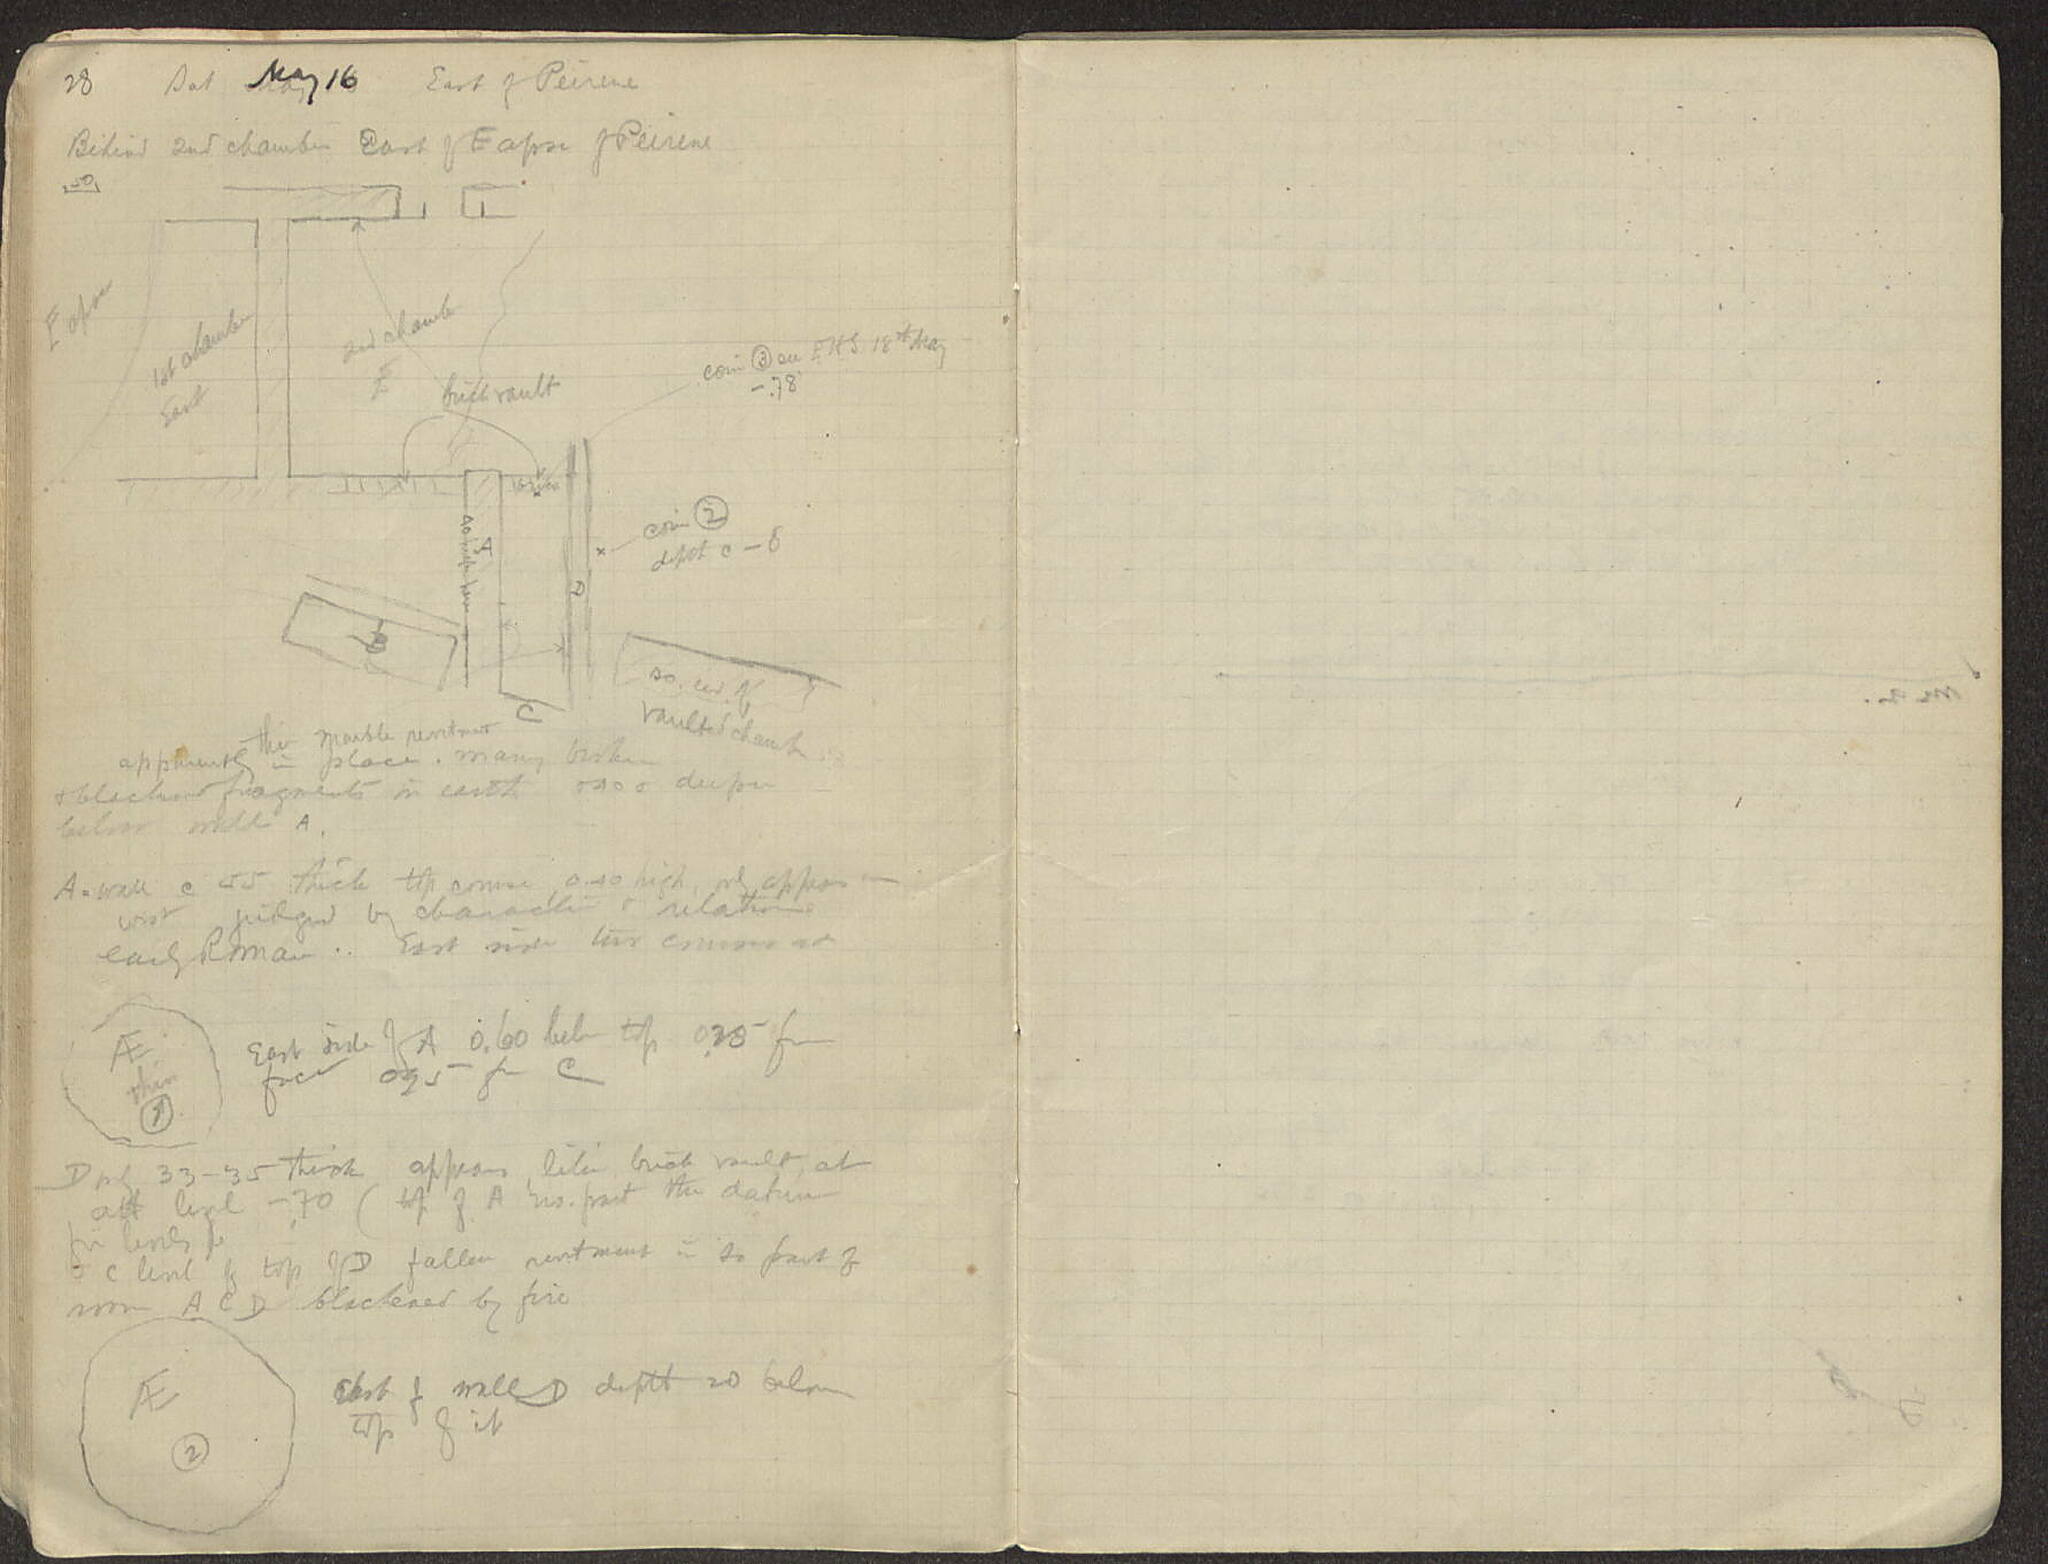 28 Sat May 16 East of Peirene
Behind 2nd chamber East of E apse of Peirene
1.50
E apse
1st chamber
East
2nd chamber
E
brick vault
coin ③ see 18th May
-.78
coin ②
depth c -.8
A
D
B
C
so. end of
vaulted chamb
thin marble revetment
apparently in place. many broken
& blackened fragments in earth deeper
below wall A.
A = wall c 55 thick top course 0.40 high, only appears on
west judged by character & relations
early Roman. East side two courses
Æ
thin
①
East side of A 0.60 below top 0.25 from
face 0.95 from C
D only 33-35 thick appears, like brick vault, at
level -.70 (top of A no. part the datum
for levels
c level of top of D fallen revetment in so part of
room A C D blackened by fire
Æ
②
East of wall D depth 20 below
top of it